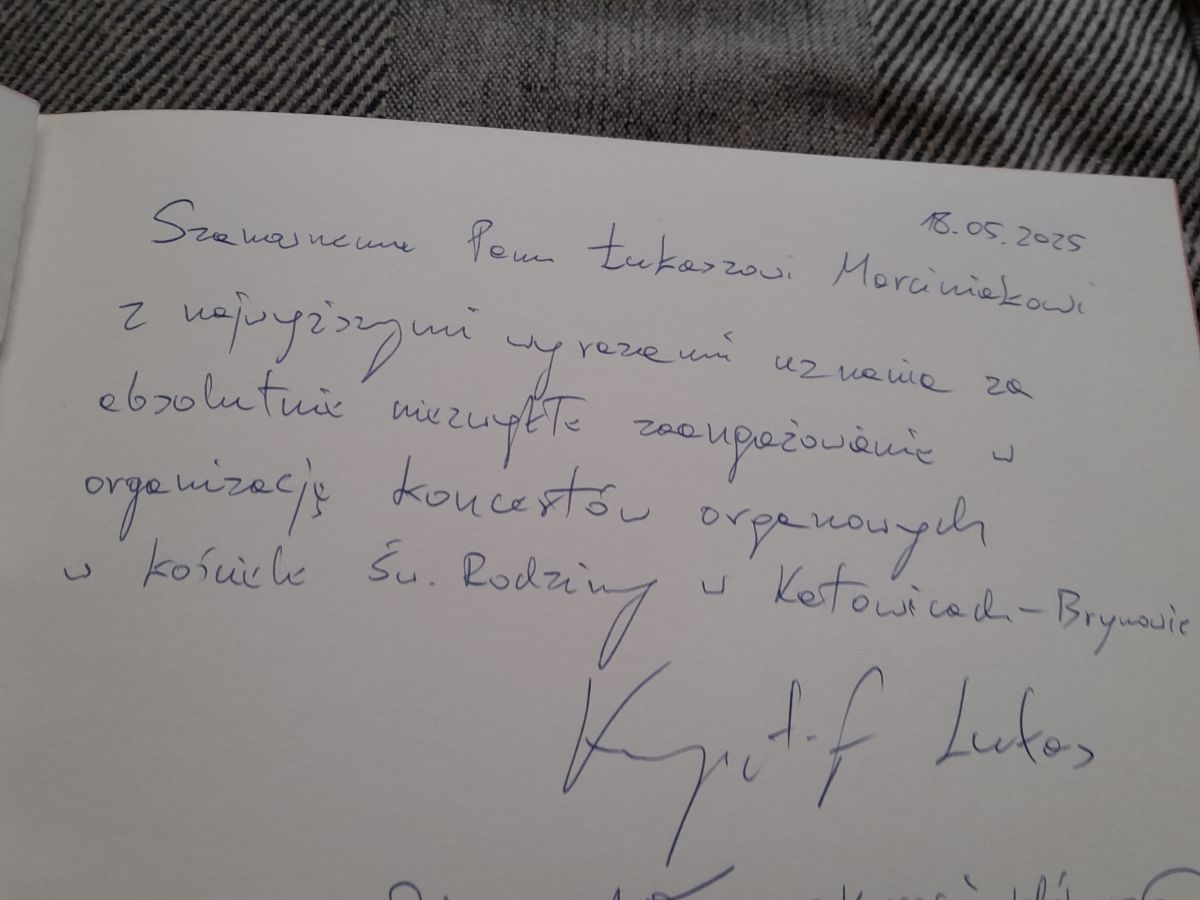 18.05.2025
Szanownemu Panu Łukaszowi Marciniakowi
z najwyższymi wyrazami uznania za
absolutnie niezwykłe zaangażowanie w
organizację koncertów organowych
w kościele Św. Rodziny w Katowicach-Brynowie
Krzysztof Lukas